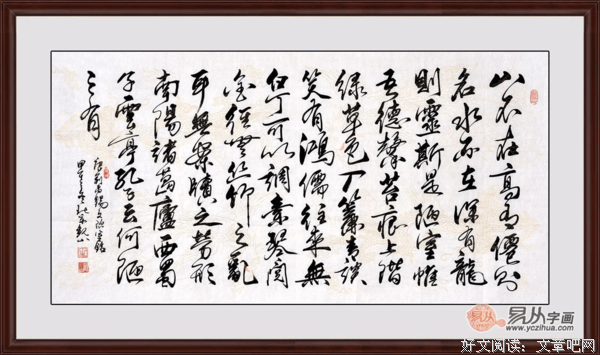 山不在高有僊则
名水不在深有龍
則靈斯是陋室惟
吾德馨苔痕上階
緑草色入簾青談
笑有鴻儒往来無
白丁可以調素琴閲
金經無丝竹之亂
耳無案牘之勞形
南陽諸葛廬西蜀
子雲亭孔子云何陋
之有
唐劉禹錫文陋室銘
易从字画
www.yczihua.com
好文阅读：文章吧网